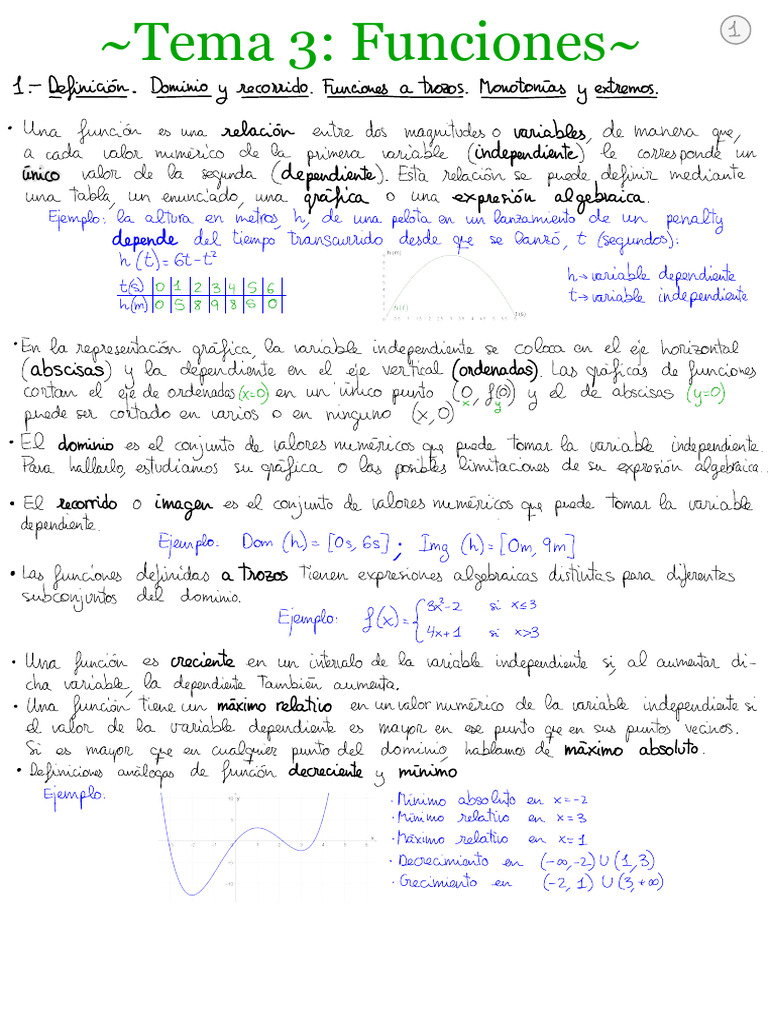 ~Tema 3: Funciones~
1
1.- Definición. Dominio y recorrido. Funciones a trozos. Monotonías y extremos.
• Una función es una relación entre dos magnitudes o variables, de manera que,
a cada valor numérico de la primera variable (independiente) le corresponde un
único valor de la segunda (dependiente). Esta relación se puede definir mediante
una tabla, un enunciado, una gráfica o una expresión algebraica.
Ejemplo: la altura en metros, h, de una pelota en un lanzamiento de un penalty
depende del tiempo transcurrido desde que se lanzó, t (segundos):
h(t)=6t-t²
t(s) 0 1 2 3 4 5 6
h(m) 0 5 8 9 8 5 0
h→variable dependiente
t→variable independiente
• En la representación gráfica, la variable independiente se coloca en el eje horizontal
(abscisas) y la dependiente en el eje vertical (ordenadas). Las gráficas de funciones
cortan el eje de ordenadas (x=0) en un único punto (0, f(0)) y el de abscisas (y=0)
x y
puede ser cortado en varios o en ninguno (x,0)
• El dominio es el conjunto de valores numéricos que puede tomar la variable independiente.
Para hallarlo, estudiamos su gráfica o las posibles limitaciones de su expresión algebraica.
• El recorrido o imagen es el conjunto de valores numéricos que puede tomar la variable
dependiente.
Ejemplo. Dom (h)=[0s, 6s] ; Img (h)=[0m, 9m]
• Las funciones definidas a trozos tienen expresiones algebraicas distintas para diferentes
subconjuntos del dominio.
Ejemplo: f(x)={3x²-2 si x≤3
4x+1 si x>3
• Una función es creciente en un intervalo de la variable independiente si, al aumentar di-
cha variable, la dependiente también aumenta.
• Una función tiene un máximo relativo en un valor numérico de la variable independiente si
el valor de la variable dependiente es mayor en ese punto que en sus puntos vecinos.
Si es mayor que en cualquier punto del dominio, hablamos de máximo absoluto.
• Definiciones análogas de función decreciente y mínimo
Ejemplo.
• Mínimo absoluto en x=-2
• Mínimo relativo en x=3
• Máximo relativo en x=1
• Decrecimiento en (-∞,-2) U (1,3)
• Crecimiento en (-2, 1) U (3,+∞)